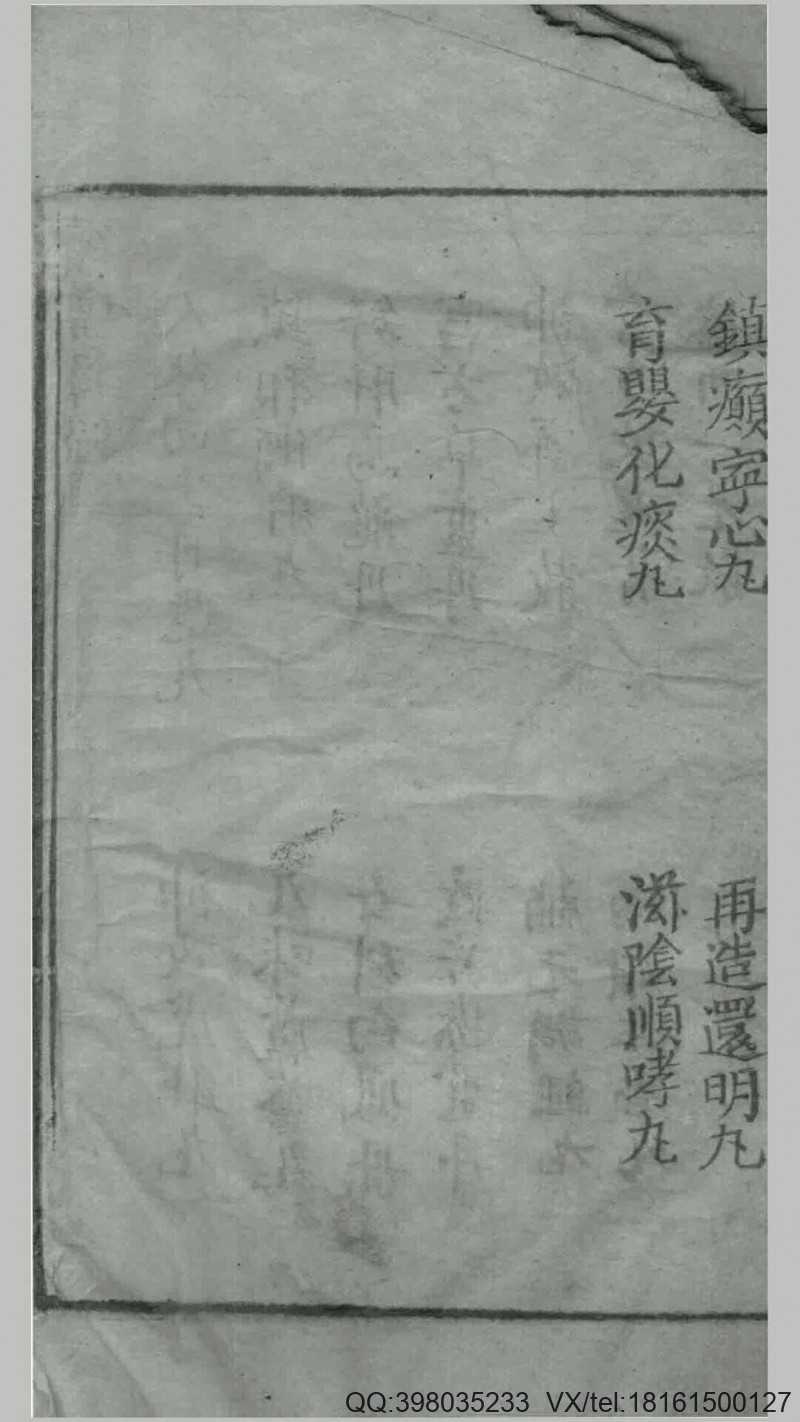 鎮癲寧心丸
再造還明丸
育嬰化痰丸
滋陰順哮丸
QQ:398035233 VX/tel:18161500127